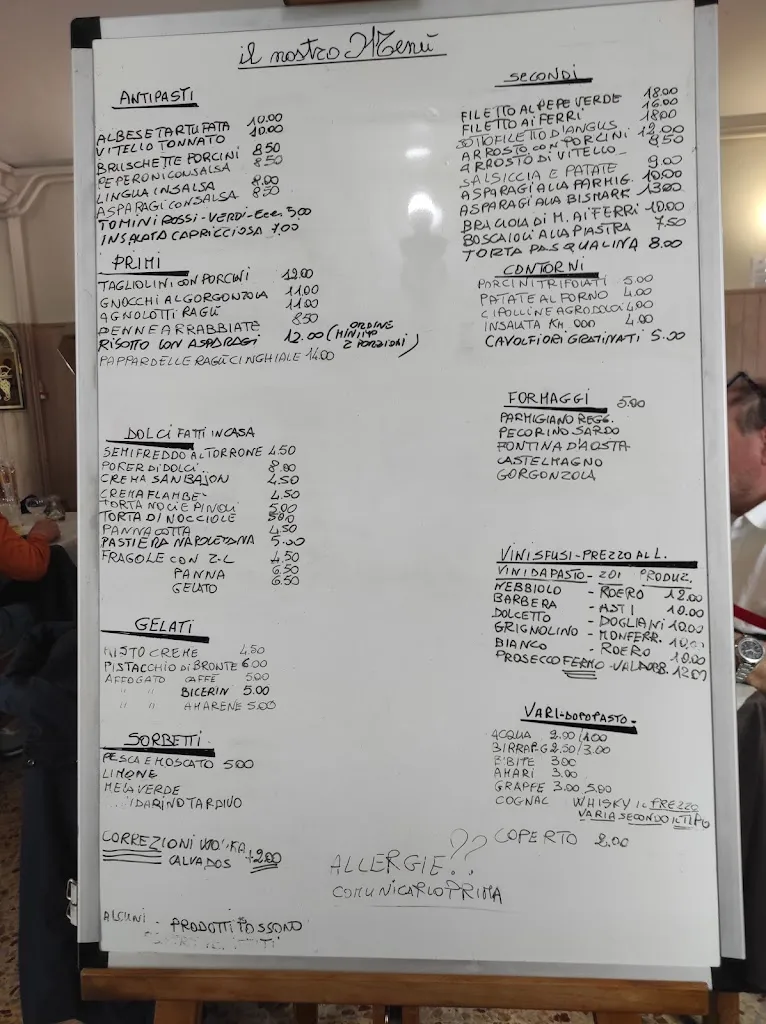 il nostro Menù
ANTIPASTI
ALBESE TARTUFATA 10.00
VITELLO TONNATO 10.00
BRUSCHETTE PORCINI 8.50
PEPERONI CON SALSA 8.50
LINGUA IN SALSA 8.00
ASPARAGI CON SALSA 8.50
TOMINI ROSSI-VERDI-Ecc. 5,00
INSALATA CAPRICCIOSA 7,00
PRIMI
TAGLIOLINI CON PORCINI 12.00
GNOCCHI AL GORGONZOLA 11,00
AGNOLOTTI RAGÙ 11.00
PENNE ARRABBIATE 8.50
RISOTTO CON ASPARAGI 12.00 (ORDINE MINIMO 2 PORZIONI)
PAPPARDELLE RAGÙ CINGHIALE 14.00
DOLCI FATTI IN CASA
SEMIFREDDO AL TORRONE 4.50
POKER DI DOLCI 8.00
CREMA SANBAJON 4,50
CREMA FLAMBE' 4.50
TORTA NOCI E PINOLI 5.00
TORTA DI NOCCIOLE 5.00
PANNA COTTA 4.50
PASTIERA NAPOLETANA 5.00
FRAGOLE CON Z-L 4.50
PANNA 6.50
GELATO 6.50
GELATI
MISTO CREME 4.50
PISTACCHIO DI BRONTE 6.00
AFFOGATO CAFFÈ 5.00
" " BICERIN 5.00
" " AMARENE 5.00
SORBETTI
PESCA E MOSCATO 5.00
LIMONE
MELA VERDE
TARDIVO
CORREZIONI
CALVADOS +2.00
ALCUNI - PRODOTTI POSSONO
SECONDI
FILETTO AL PEPE VERDE 18.00
FILETTO AI FERRI 16.00
SOTTOFILETTO D'ANGUS 18.00
ARROSTO CON PORCINI 12.00
ARROSTO DI VITELLO 9.50
SALSICCIA E PATATE 9.00
ASPARAGI ALLA PARMIG. 10.00
ASPARAGI ALLA BISMARK 13.00
BRACIOLA DI M. AI FERRI 10.00
BOSCAIOLI ALLA PIASTRA 7.50
TORTA PASQUALINA 8.00
CONTORNI
PORCINI TRIFOLATI 5.00
PATATE AL FORNO 4.00
CIPOLLINE AGRODOLCI 4,00
INSALATA KM. 000 4.00
CAVOLFIORI GRATINATI 5.00
FORMAGGI 5.00
PARMIGIANO REGG.
PECORINO SARDO
FONTINA D'AOSTA
CASTELMAGNO
GORGONZOLA
VINI SFUSI-PREZZO AL L.
VINI DA PASTO - ZONA PRODUZ.
NEBBIOLO - ROERO 12.00
BARBERA - ASTI 10.00
DOLCETTO - DOGLIANI 10.00
GRIGNOLINO - MONFERR. 10.00
BIANCO - ROERO 10.00
PROSECCO FERMO - VALDOBB. 12.00
VARI-DOPOPASTO-
ACQUA 2.00/1.00
BIRRA P.G 2.50/3.00
BIBITE 3.00
AMARI 3.00
GRAPPE 3.00 5.00
COGNAC WHISKY IL PREZZO
VARIA SECONDO IL TIPO
COPERTO 2,00
ALLERGIE??
COMUNICARLO PRIMA